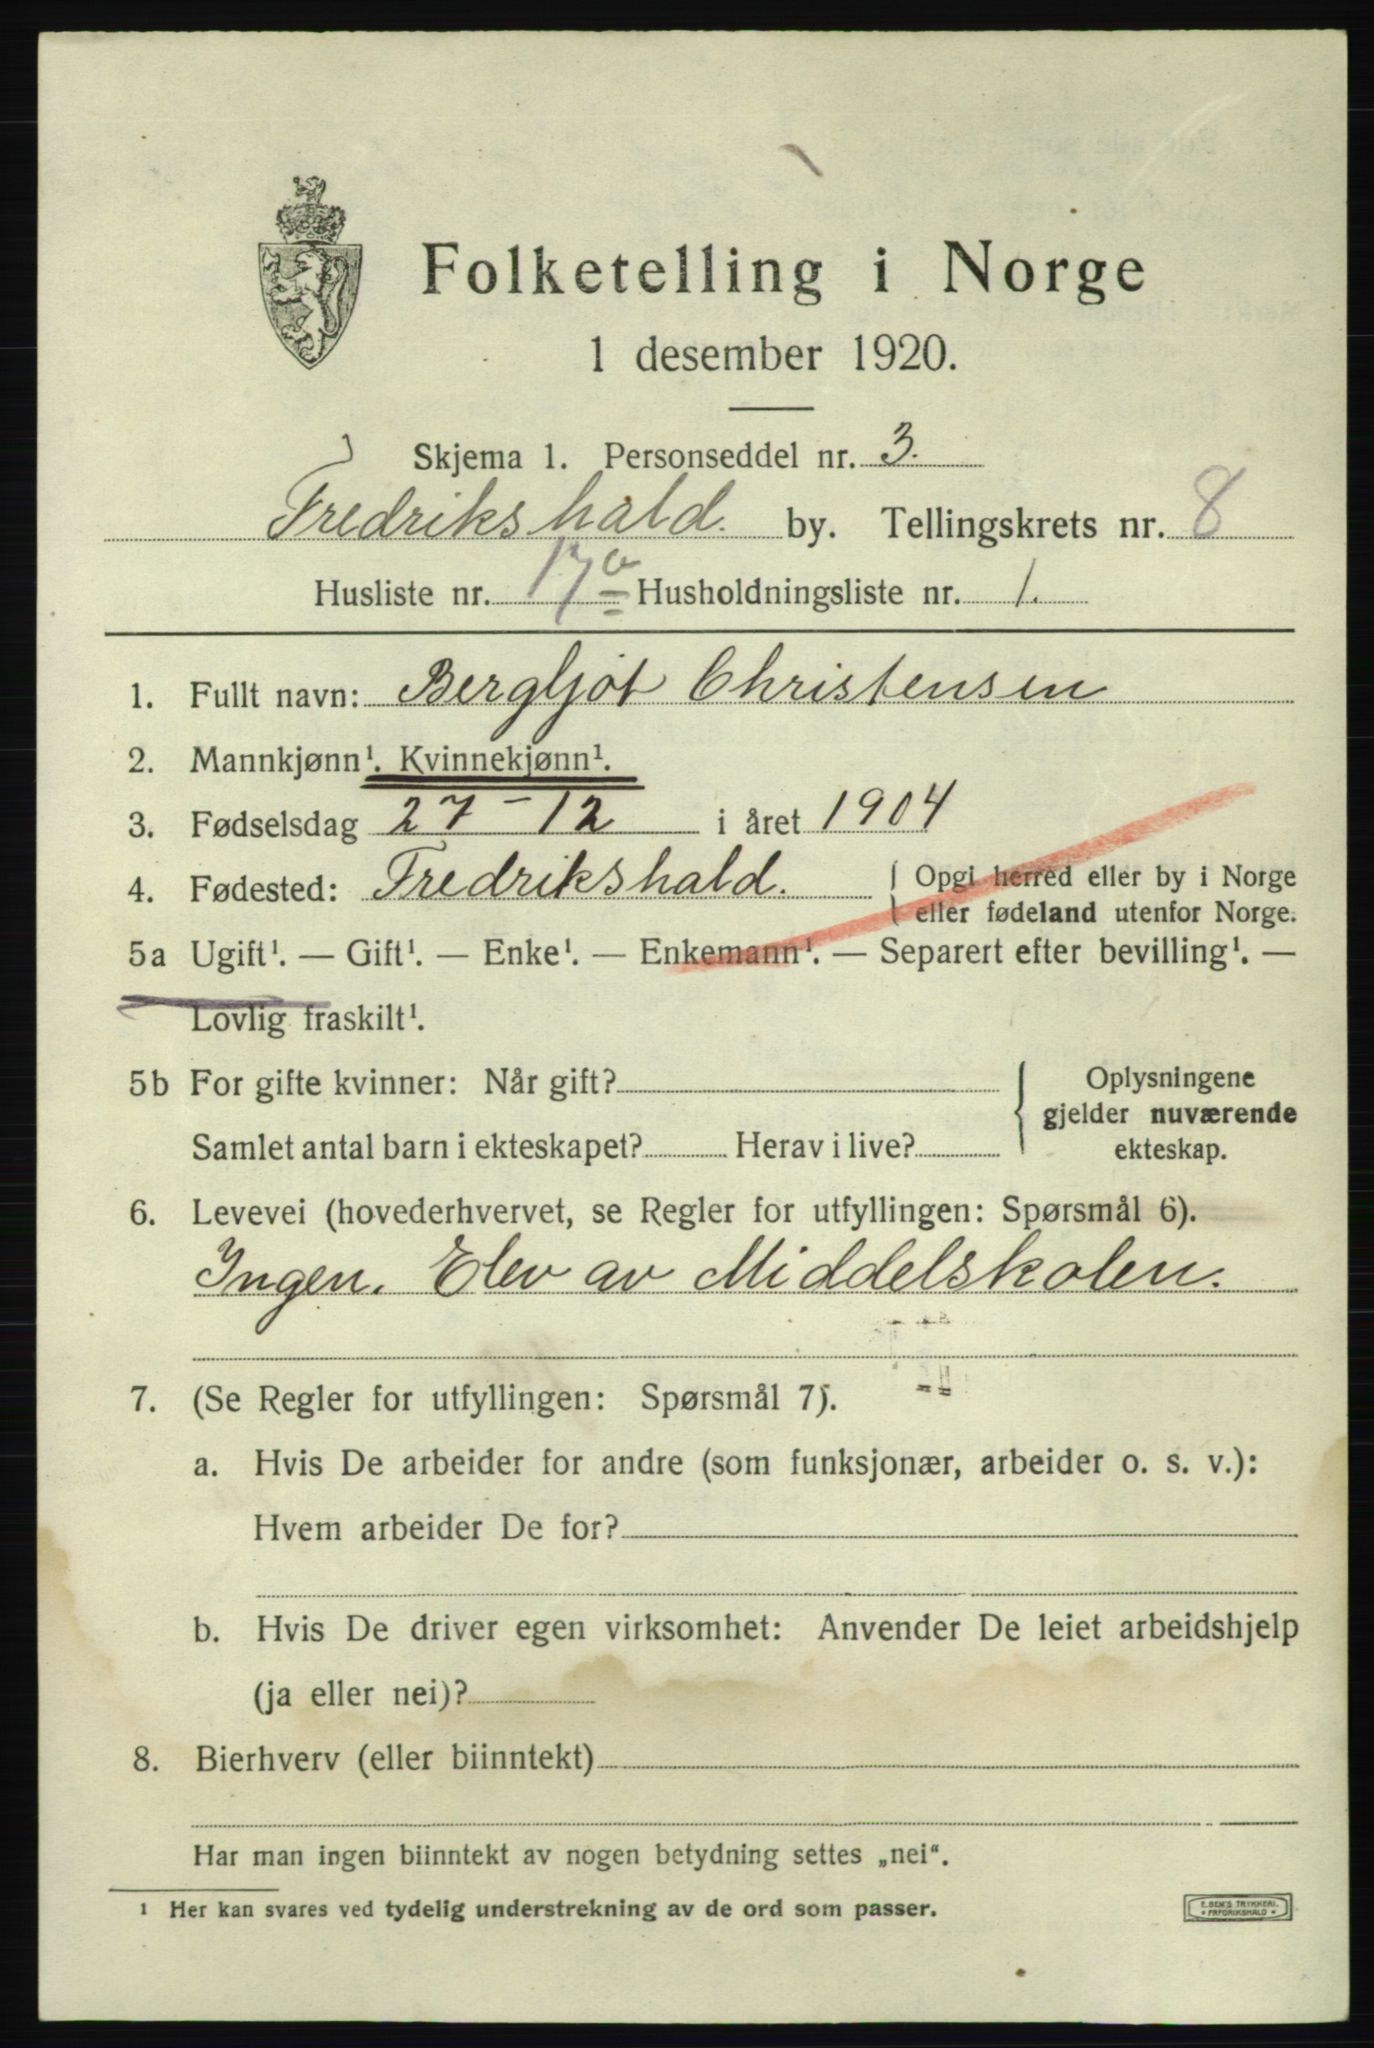 Folketelling i Norge
1 desember 1920.
Skjema 1. Personseddel nr. 3.
Fredrikshald. by. Tellingskrets nr. 8
Husliste nr. 17 Husholdningsliste nr. 1.
1. Fullt navn: Bergljot Christensen
2. Mannkjønn¹. Kvinnekjønn¹.
3. Fødselsdag 27-12 i året 1904
4. Fødested: Fredrikshald. { Opgi herred eller by i Norge
eller fødeland utenfor Norge.
5a Ugift¹. — Gift¹. — Enke¹. — Enkemann¹. — Separert efter bevilling¹. —
Lovlig fraskilt¹.
5b For gifte kvinner: Når gift? { Oplysningene
gjelder nuværende
Samlet antal barn i ekteskapet? Herav i live? ekteskap.
6. Levevei (hovederhvervet, se Regler for utfyllingen: Spørsmål 6).
Ingen. Elev av Middelskolen.
7. (Se Regler for utfyllingen: Spørsmål 7).
a. Hvis De arbeider for andre (som funksjonær, arbeider o. s. v.):
Hvem arbeider De for?
b. Hvis De driver egen virksomhet: Anvender De leiet arbeidshjelp
(ja eller nei)?
8. Bierhverv (eller biinntekt)
Har man ingen biinntekt av nogen betydning settes „nei“.
¹ Her kan svares ved tydelig understrekning av de ord som passer.
E. SEM'S TRYKKERI.
* FREDRIKSHALD *